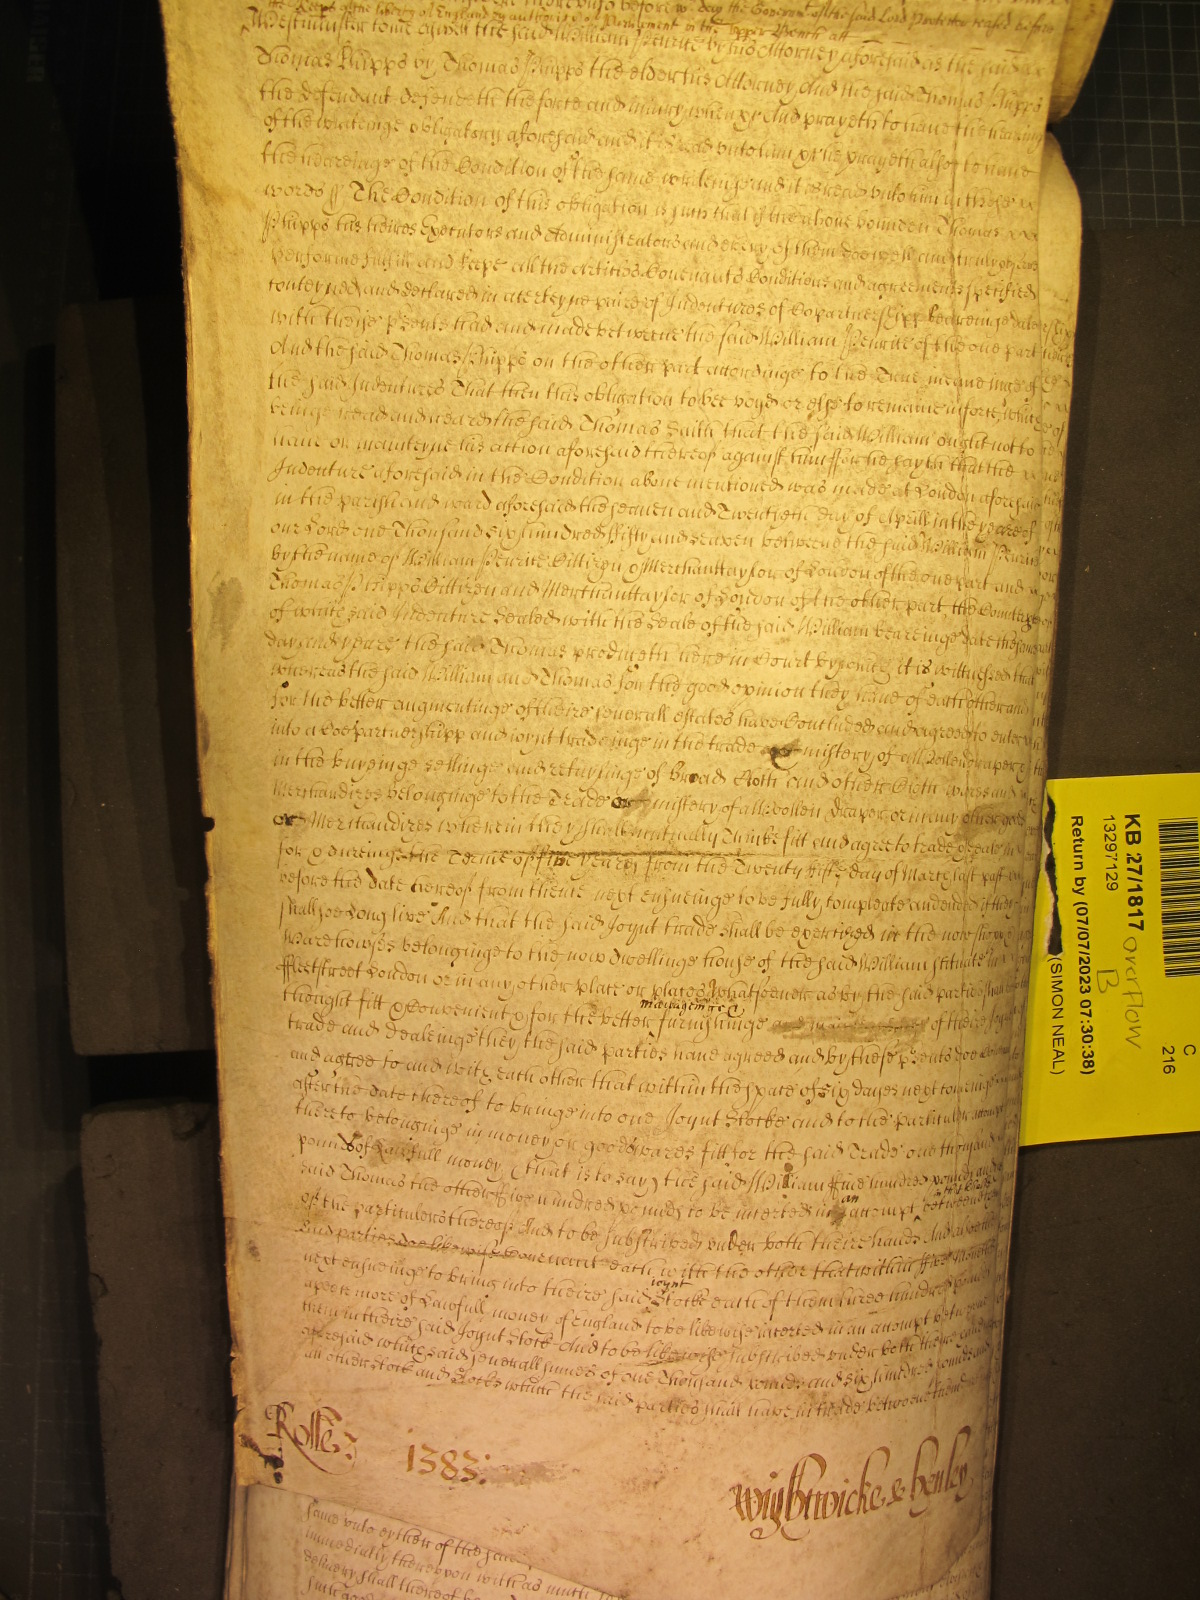 the keeps of the liberty of England by authority of Parliament in the upper Bench
Westminster come aswell the said William Penrice by his Attorney aforesaid as the said
Thomas Phipps by Thomas Phipps the elder his Attorney And the said Thomas Phipps
the defendant defendeth the force and iniury when &c And prayeth to have the hearing
of the writeinge obligatory aforesaid and it is read unto him &c he prayeth also to have
the heareinge of the Condition of the same writeinge and it is read unto him in these
words ss The Condition of this obligation is such that if the above bounden Thomas
Phipps his heires Executors and Administrators and every of them doe well and truly observe
performe fulfill and keepe all the Articles Covenants Conditions and agreements specified
conteyned and declared in a certeyne paire of Indentures of Copartnershipp beareinge date
with these presents had and made betweene the said William Penrice of the one part
And the said Thomas Phipps on the other part accordinge to the true meaneinge of
the said Indentures That then this obligation to bee voyd or else to remaine in force which
beinge read and heard the said Thomas saith that the said William ought not to
have or mainteyne his action aforesaid thereof against him ffor he sayth that the
Indenture aforesaid in the Condition above mentioned was made at London aforesaid
in the parish and ward aforesaid the seaven and Twentyeth day of Aprill in the yeare of
our Lord one Thousand Six hundred ffifty and seaven betweene the said William Penrice
by the name of William Penrice Cittizen & Merchanttaylor of London of the one part and
Thomas Phipps Cittizen and Merchanttaylor of London of the other part, the Counterpart
of which said Indenture sealed with the seale of the said William beareinge date the same
day and yeare the said Thomas produceth here in Court by which it is witnessed that
whereas the said William and Thomas for the good opinion they have of each other and
for the better augmentinge of theire severall estates have Concluded and agreed to enter
into a Copartnershipp and ioynt tradeinge in the trade mistery of a Wollendraper
in the buyeinge sellinge and retaylinge of broad Cloth and other Cloth wares and
Merchandizes belonginge to the Trade or mistery of a Wollen draper, or in any other goods
or Merchandizes wherein they shall mutually thinke fitt and agree to trade & deale in
for & dureinge the Terme of five yeares from the Twenty ffifte day of March last past
before the date hereof from thence next ensueinge to be fully compleate and ended if they
shall soe long live And that the said Joynt trade shall be exercised in the now shopp
Warehowses belonginge to the now dwellinge house of the said William scituate in
ffleetstreet London or in any other place or places whatsoever as by the said parties shall
manageinge
thought fitt & Convenient & for the better furnishinge of theire
trade and dealeings they the said parties have agreed and by these presents doe
and agree to and with each other that within the space of Six dayes next comeinge
after the date thereof to bringe into one Joynt Stocke and to the particular accompt
thereto belonginge in money or goods wares fitt for the said Trade one thousand
pounds of Lawfull money (that is to say) the said William ffive hundred pounds and
said Thomas the other ffive hundred pounds to be inserted in an accompt betweene
of the particulers thereof And to be subscribed under both theire hands And
said parties doe likewise Covenant each with the other that within ffive moneths
next ensueinge to bring into theire said ioynt Stocke each of them three hundred pounds
apeece more of Lawfull money of England to be likewise inserted in an accompt betweene
them in theire said Joynt Stock And to be likewise subscribed under both theire hands
aforesaid which said severall sumes of one Thousand pounds and six hundred pounds and
all other stock and Stocks which the said parties shall have in trade betweene them
Rolle: 1383:
Wightwicke & henley
same unto eyther of the said
immediatly thereupon with as much
delivery shall thereof be
such good
KB 27/1817 overflow
13297129 B
Return by (07/07/2023 07:30:38)
(SIMON NEAL)
C
216